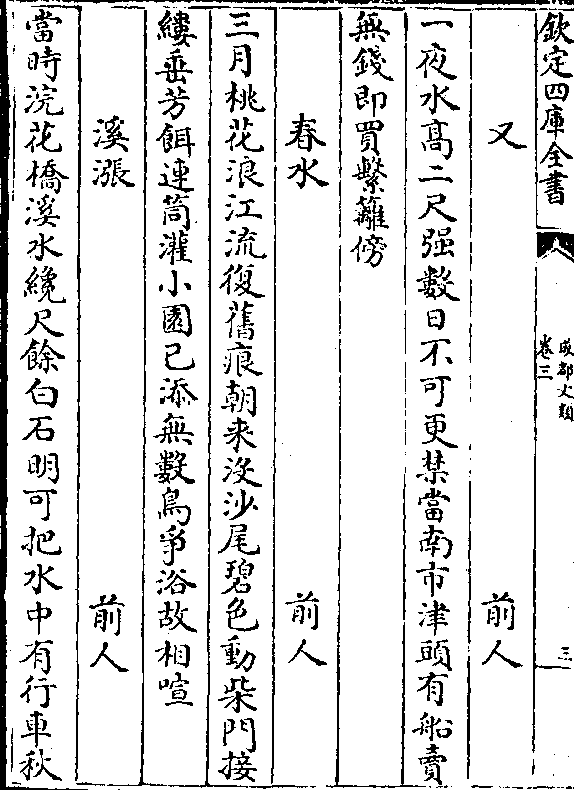 欽定四庫全書
成都文類
卷三
三
又 前人
一夜水髙二尺强數日不可更禁當南市津頭有船賣
無錢即買繫籬傍
春水 前人
三月桃花浪江流復舊痕朝来沒沙尾碧色動柴門接
縷垂芳餌連筒灌小園已添無數鳥爭浴故相喧
溪漲 前人
當時浣花橋溪水纔尺餘白石明可把水中有行車秋